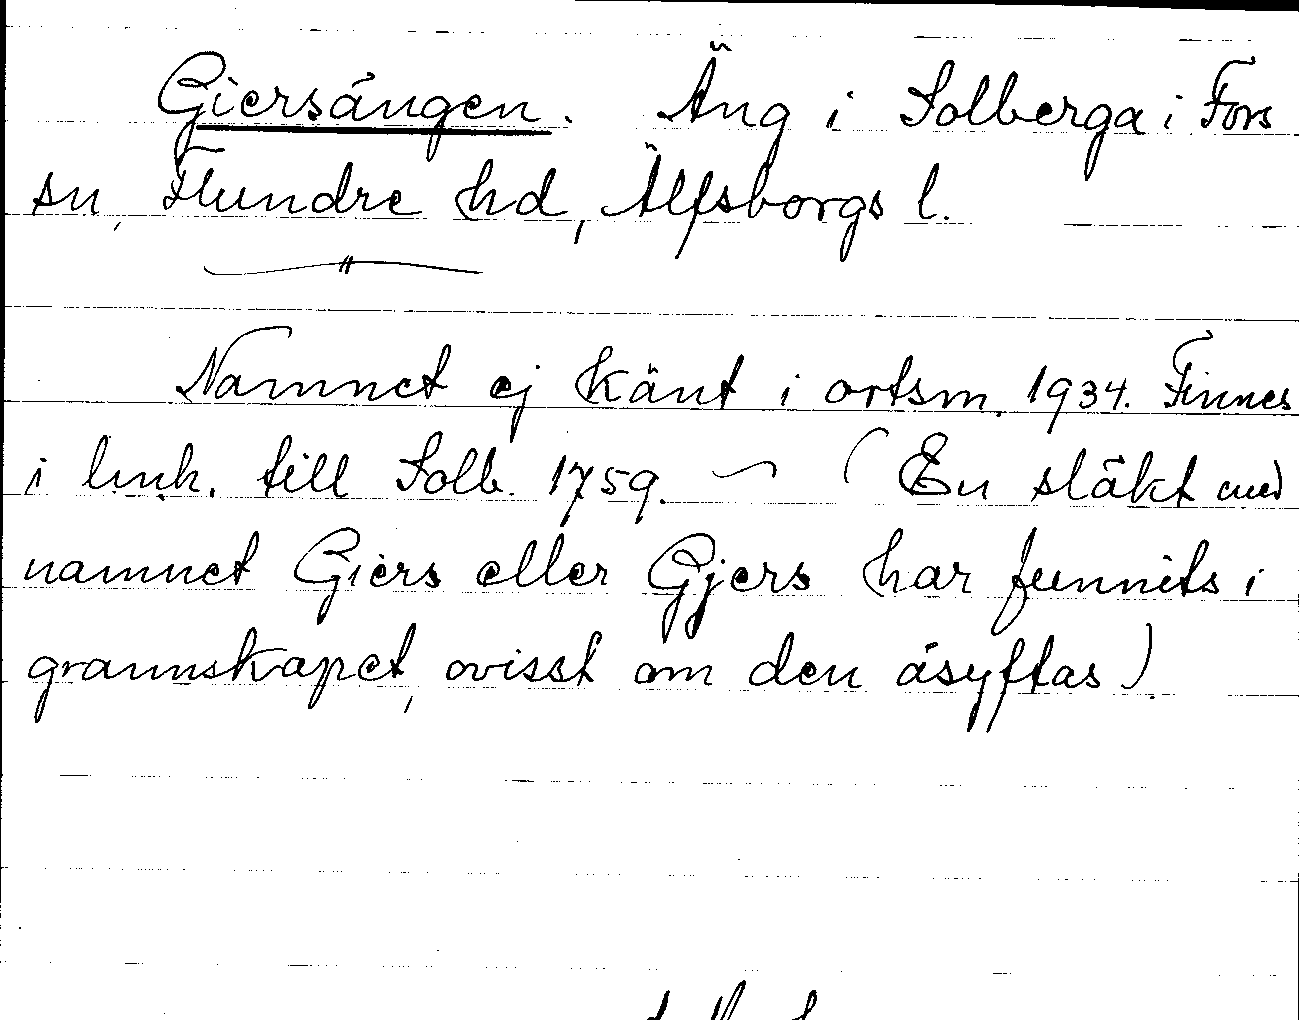 Giersängen. Äng i Solberga i Fors
sn, Flundre hd, Älfsborgs l.
Namnet ej känt i ortsm. 1934. Finnes
i lmh. till Solb. 1759. ~ (En släkt med
namnet Giers eller Gjers har funnits i
grannskapet, ovisst om den åsyftas).